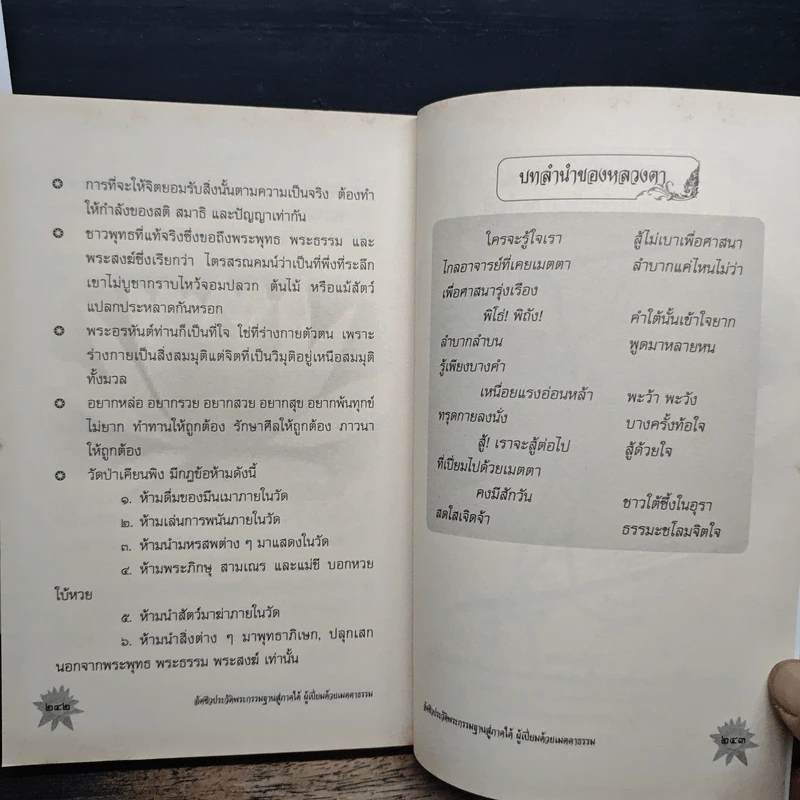 การที่จะให้จิตยอมรับสิ่งนั้นตามความเป็นจริง ต้องทำ
ให้กำลังของสติ สมาธิ และปัญญาเท่ากัน
ชาวพุทธที่แท้จริงซึ่งขอถึงพระพุทธ พระธรรม และ
พระสงฆ์ซึ่งเรียกว่า ไตรสรณคมน์ว่าเป็นที่พึ่งที่ระลึก
เขาไม่บูชากราบไหว้จอมปลวก ต้นไม้ หรือแม้สัตว์
แปลกประหลาดกันหรอก
พระอรหันต์ท่านก็เป็นที่ใจ ใช่ที่ร่างกายตัวตน เพราะ
ร่างกายเป็นสิ่งสมมุติแต่จิตที่เป็นวิมุติอยู่เหนือสมมุติ
ทั้งมวล
อยากหล่อ อยากรวย อยากสวย อยากสุข อยากพ้นทุกข์
ไม่ยาก ทำทานให้ถูกต้อง รักษาศีลให้ถูกต้อง ภาวนา
ให้ถูกต้อง
วัดป่าเคียนพิง มีกฎข้อห้ามดังนี้
๑. ห้ามดื่มของมึนเมาภายในวัด
๒. ห้ามเล่นการพนันภายในวัด
๓. ห้ามนำมหรสพต่าง ๆ มาแสดงในวัด
๔. ห้ามพระภิกษุ สามเณร และแม่ชี บอกหวย
ใบ้หวย
๕. ห้ามนำสัตว์มาฆ่าภายในวัด
๖. ห้ามนำสิ่งต่าง ๆ มาพุทธาภิเษก, ปลุกเสก
นอกจากพระพุทธ พระธรรม พระสงฆ์ เท่านั้น
อัตชีวประวัติพระกรรมฐานสู่ภาคใต้ ผู้เปี่ยมด้วยเมตตาธรรม
๒๔๒
บทลำนำของหลวงตา
ใครจะรู้ใจเรา สู้ไม่เบาเพื่อศาสนา
ไกลอาจารย์ที่เคยเมตตา ลำบากแค่ไหนไม่ว่า
เพื่อศาสนารุ่งเรือง
พิโธ่! พิถัง! คำใต้นั้นเข้าใจยาก
ลำบากลำบน พูดมาหลายหน
รู้เพียงบางคำ
เหนื่อยแรงอ่อนหล้า พะว้า พะวัง
ทรุดกายลงนั่ง บางครั้งท้อใจ
สู้! เราจะสู้ต่อไป สู้ด้วยใจ
ที่เปี่ยมไปด้วยเมตตา
คงมีสักวัน ชาวใต้ซึ้งในอุรา
สดใสเจิดจ้า ธรรมะชโลมจิตใจ
อัตชีวประวัติพระกรรมฐานสู่ภาคใต้ ผู้เปี่ยมด้วยเมตตาธรรม
๒๔๓